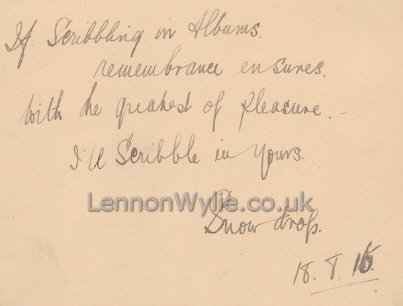 If Scribbling in Albums.
remembrance ensures.
With the greatest of Pleasure. -
I'll Scribble in Yours.
LennonWylie.co.uk
Snowdrop.
18. 8. 15